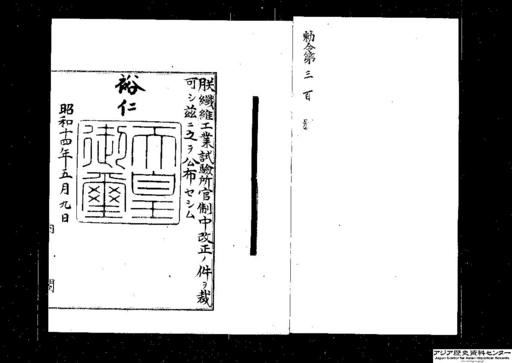 勅令第三百
朕繊維工業試験所官制中改正ノ件ヲ裁
可シ茲ニ之ヲ公布セシム
裕仁
天皇御璽
昭和十四年五月九日
内閣
アジア歴史資料センター
Japan Center for Asian Historical Records